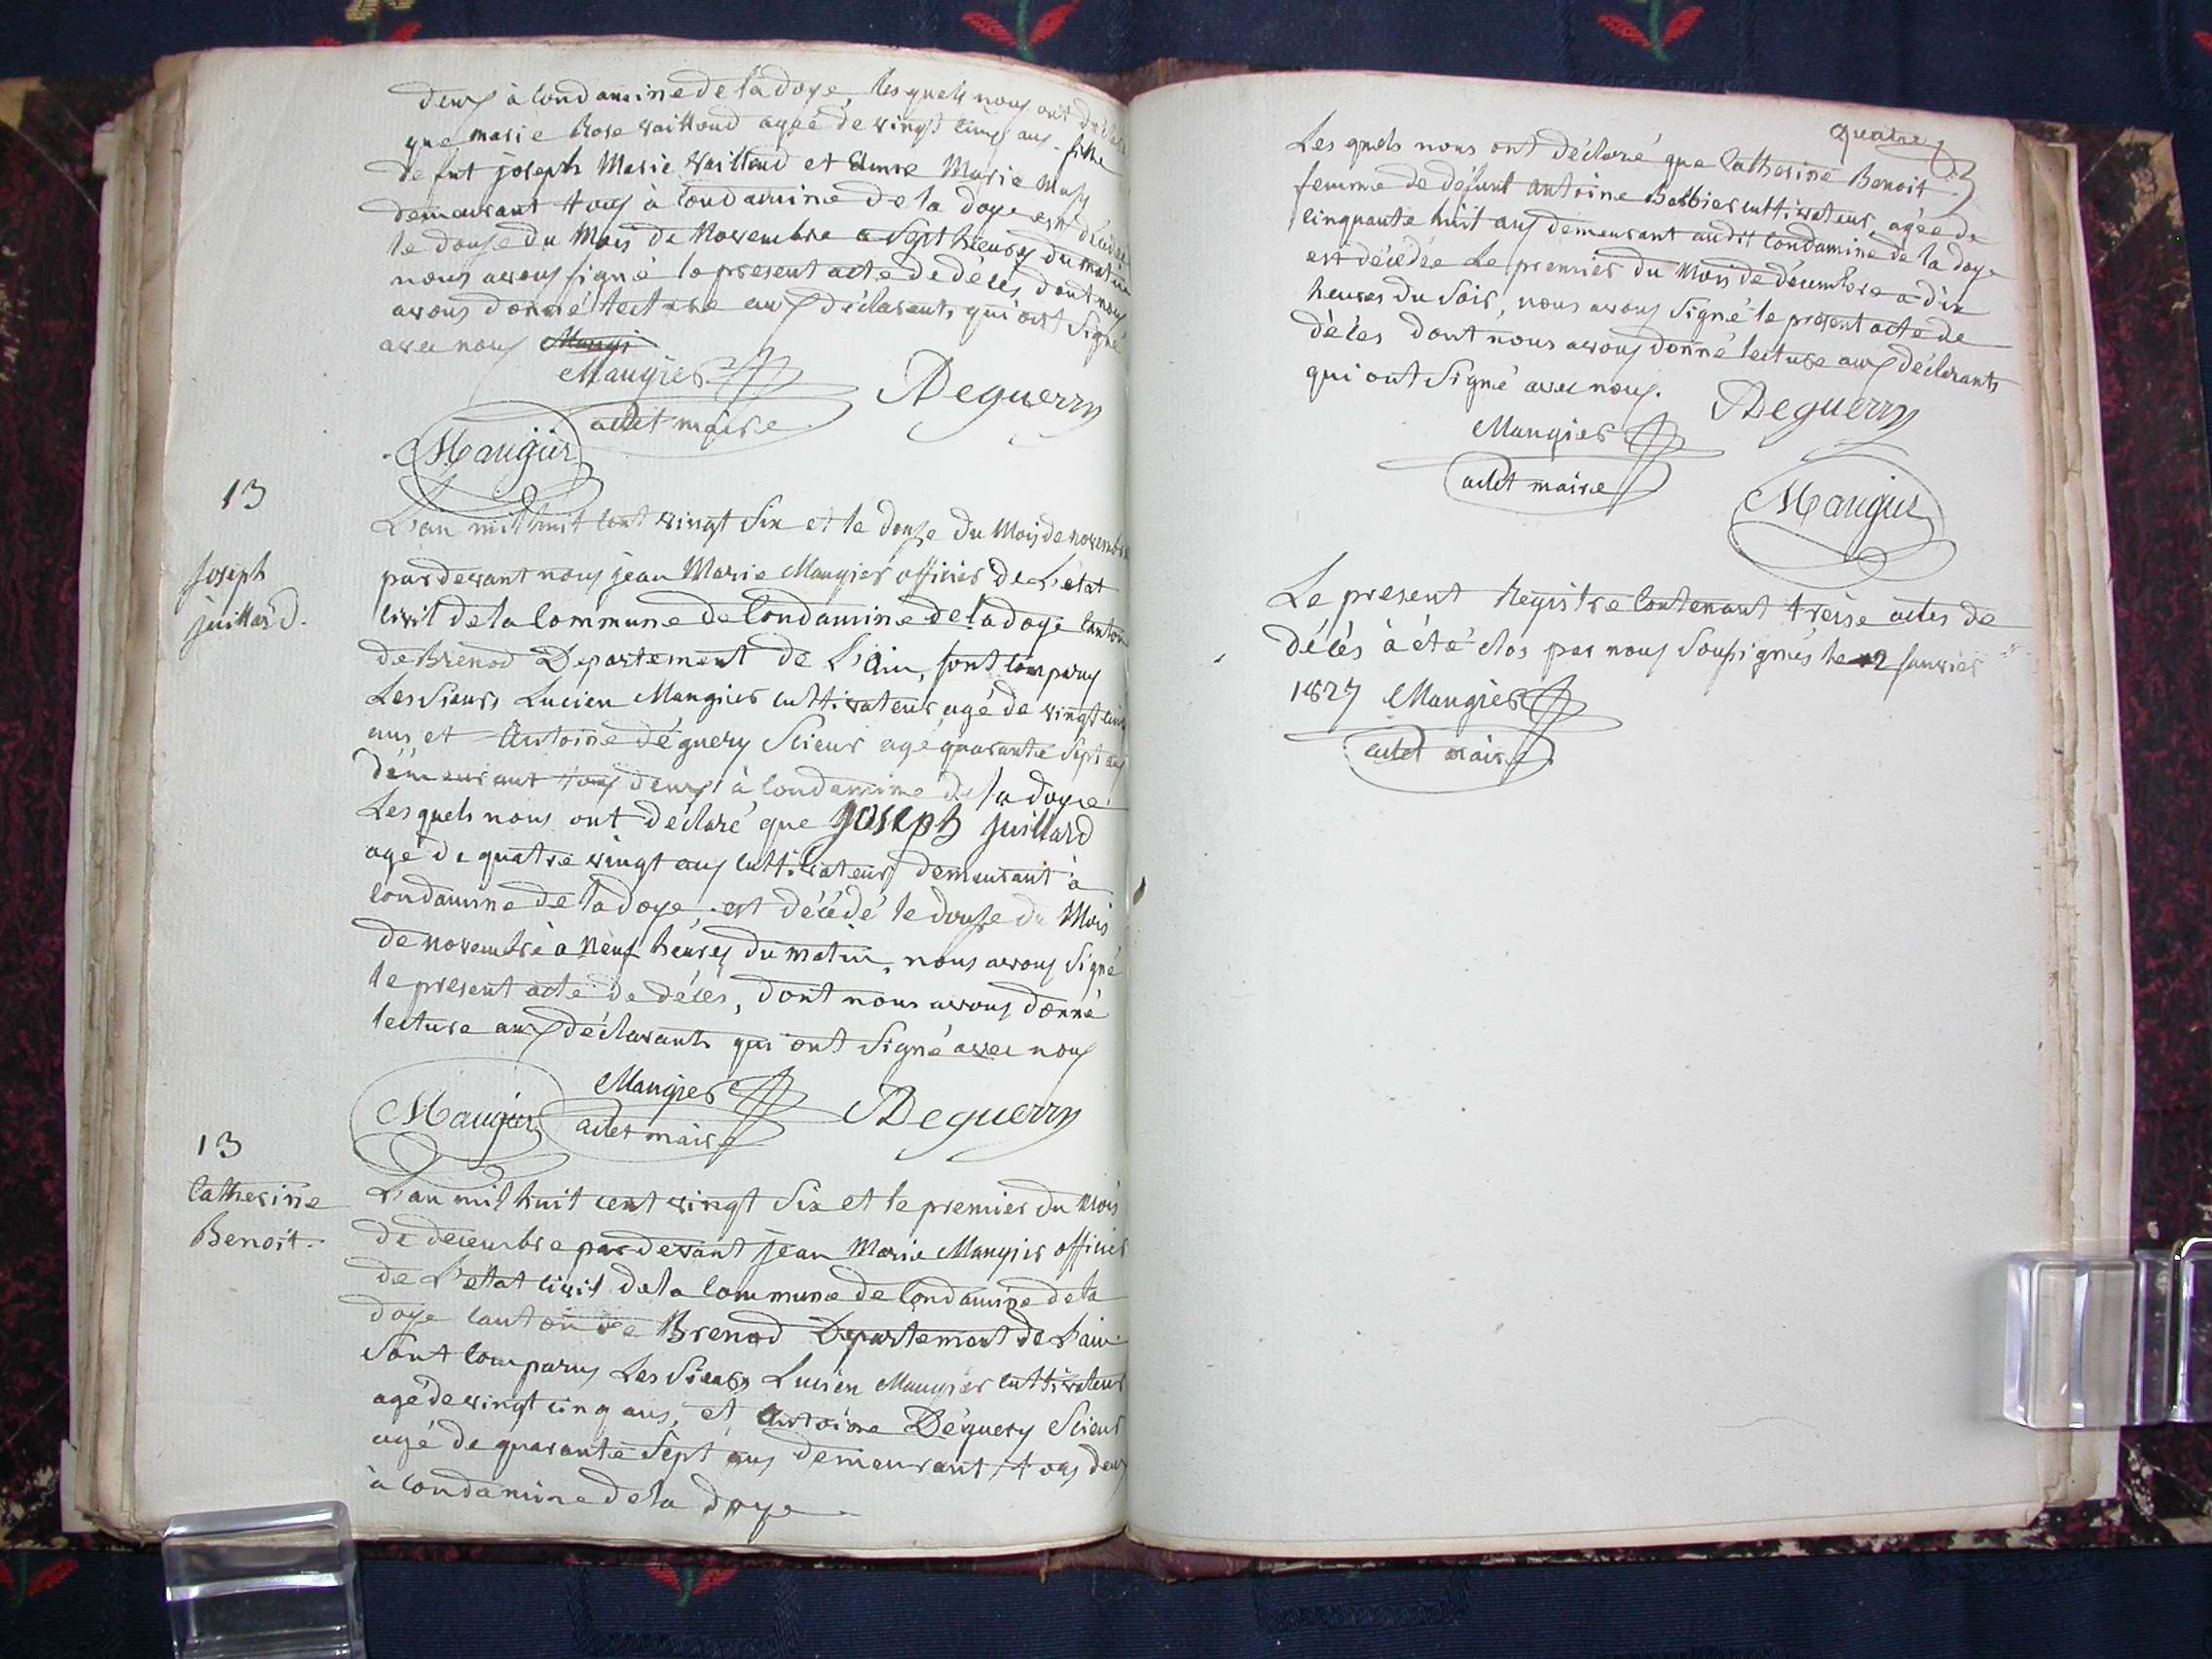 deux à Condamine de la doye, lesquels nous ont déclaré
que marie Rose vailloud agée de vingt cinq ans fille
de fut joseph Marie vailloud et Anne Marie
demeurant tous à Condamine de la doye est décédée
le douze du Mois de Novembre a Sept heures du matin
nous avons signé le present acte de décés, dont nous
avons donné lecture aux déclarants, qui ont Signé
avec nous
Maugier
adlt maire
Deguerry
Maugier
13
Joseph
juillard.
L'an mil huit cent vingt Six et le douze du Mois de novembre
pardevant nous jean Marie Maugier officier de L'état
civil de la Commune de Condamine de la doye Canton
de Brenod Departement de L'Ain, sont comparus
Les Sieurs Lucien Maugier cultivateur agé de vingt cinq
ans et Antoine déguery Scieur agé quarante Sept ans
démeurant tous deux à Condamine de la doye
Lesquels nous ont déclaré que Joseph juillard
agé de quatre vingt ans cultivateur demeurant à
Condamine de la doye, est décédé le douze du Mois
de novembre a Neuf heures du matin, nous avons Signé
le present acte de décés, dont nous avons donné
lecture aux déclarants qui ont Signé avec nous
Maugier
Maugier
adlet maire
Deguerry
13
Catherine
Benoit.
L'an mil huit cent vingt Six et le premier du Mois
de decembre par devant jean Marie Maugier officier
de L'etat civil de la Commune de Condamine de la
doye canton de Brenod Departement de L'ain
Sont comparus Les Sieurs Lucien Maugier cultivateur
agé de vingt cinq ans, et Antoine Déguery Scieur
agé de quarante Sept ans demeurant tous deux
à Condamine de la doye
quatre
Les quels nous ont déclaré que Catherine Benoit
femme de défunt Antoine Barbier cultivateur, agée de
cinquante huit ans demeurant audit Condamine de la doye
est décédée Le premier du Mois de décembre a dix
heures du Soir, nous avons Signé le présent acte de
décés dont nous avons donné lecture aux déclarants
qui ont Signé avec nous.
Maugier
adlt maire
Deguerry
Maugier
Le present Registre Contenant treise actes de
décés à été clos par nous Soussignés le 2 Janvier
1827 Maugier
adlet maire